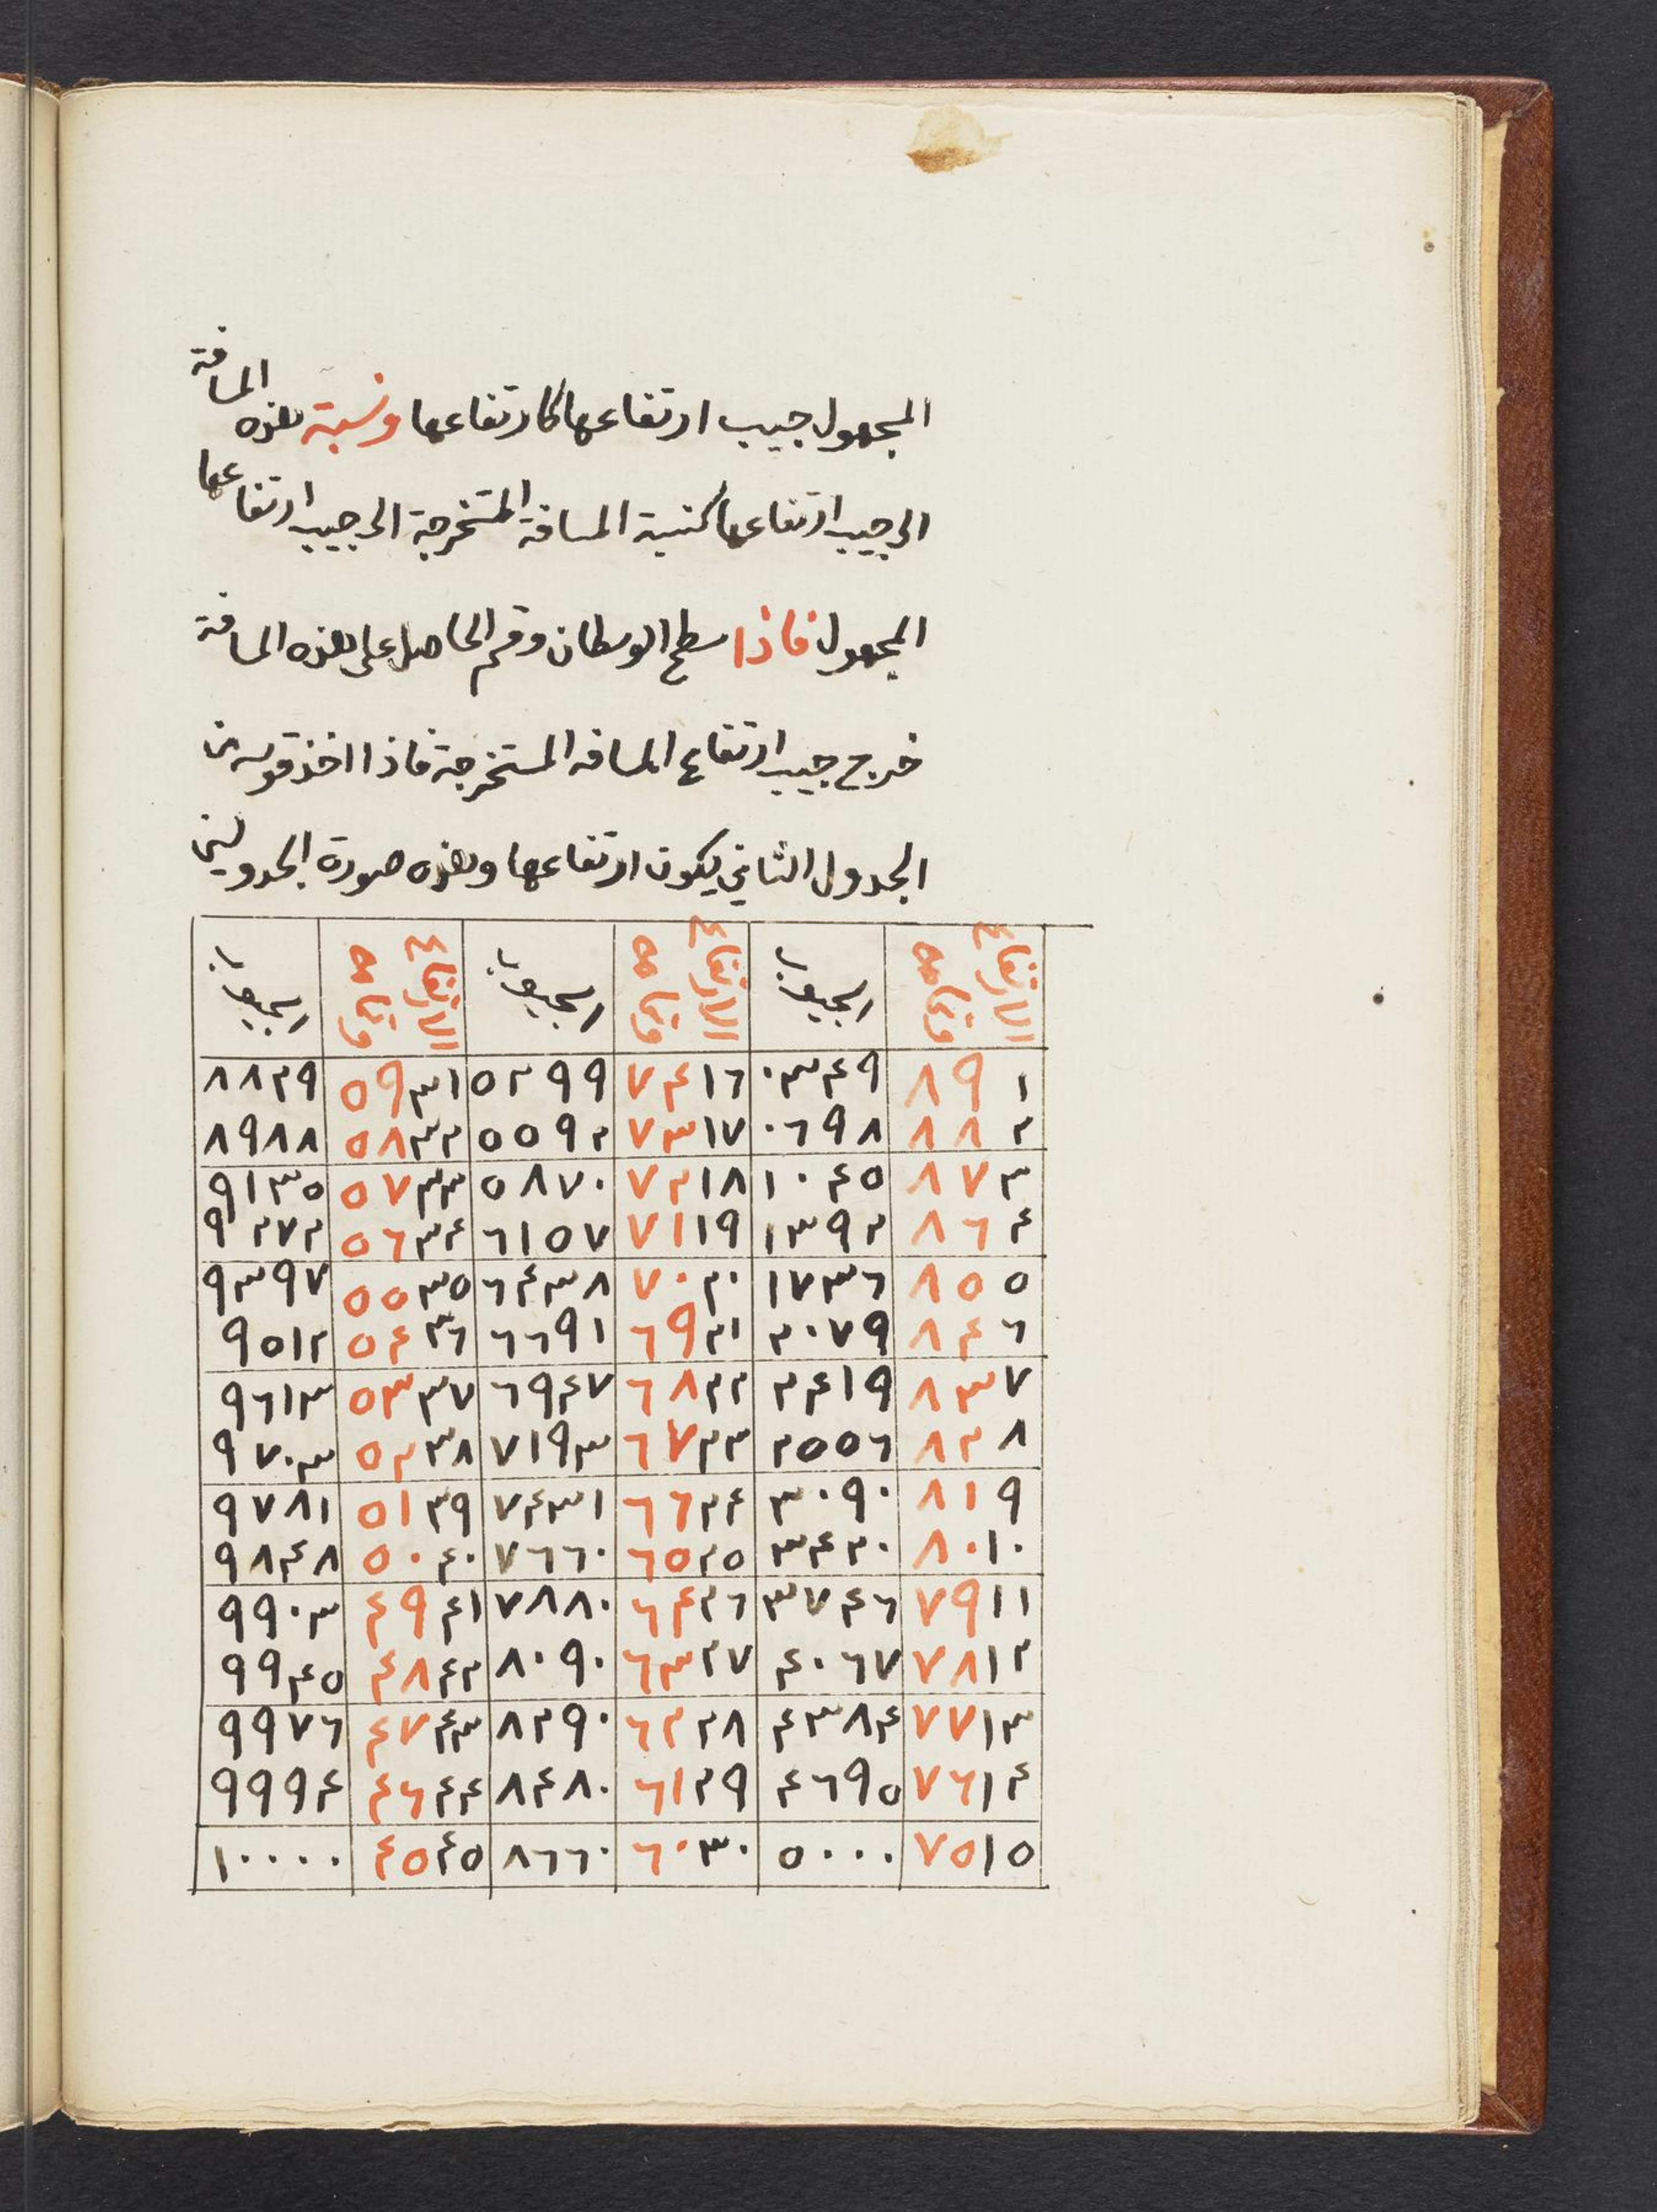 المجهول جيب ارتفاعها كارتفاعها ونسبة هذه المسافة
الى جيب ارتفاعها كنسبة المسافة المستخرجة الى جيب ارتفاعها
المجهول فاذا سطح الوسطان وقسم الحاصل على هذه المسافة
خرج جيب ارتفاع المسافه المستخرجة فاذا اخذ قوسه من
الجدول الثاني يكون ارتفاعها وهذه صورة الجدولين
الارتفاع وتمامه الجيوب الارتفاع وتمامه الجيوب الارتفاع وتمامه الجيوب
١ ٨٩ ٠٣٤٩ ١٦ ٧٤ ٥٢٩٩ ٣١ ٥٩ ٨٨٢٩
٢ ٨٨ ٠٦٩٨ ١٧ ٧٣ ٥٥٩٢ ٣٢ ٥٨ ٨٩٨٨
٣ ٨٧ ١٠٤٥ ١٨ ٧٢ ٥٨٧٠ ٣٣ ٥٧ ٩١٣٥
٤ ٨٦ ١٣٩٢ ١٩ ٧١ ٦١٥٧ ٣٤ ٥٦ ٩٢٧٢
٥ ٨٥ ١٧٣٦ ٢٠ ٧٠ ٦٤٣٨ ٣٥ ٥٥ ٩٣٩٧
٦ ٨٤ ٢٠٧٩ ٢١ ٦٩ ٦٦٩١ ٣٦ ٥٤ ٩٥١٢
٧ ٨٣ ٢٤١٩ ٢٢ ٦٨ ٦٩٤٧ ٣٧ ٥٣ ٩٦١٣
٨ ٨٢ ٢٥٥٦ ٢٣ ٦٧ ٧١٩٣ ٣٨ ٥٢ ٩٧٠٣
٩ ٨١ ٣٠٩٠ ٢٤ ٦٦ ٧٤٣١ ٣٩ ٥١ ٩٧٨١
١٠ ٨٠ ٣٤٢٠ ٢٥ ٦٥ ٧٦٦٠ ٤٠ ٥٠ ٩٨٤٨
١١ ٧٩ ٣٧٤٦ ٢٦ ٦٤ ٧٨٨٠ ٤١ ٤٩ ٩٩٠٣
١٢ ٧٨ ٤٠٦٧ ٢٧ ٦٣ ٨٠٩٠ ٤٢ ٤٨ ٩٩٤٥
١٣ ٧٧ ٤٣٨٤ ٢٨ ٦٢ ٨٢٩٠ ٤٣ ٤٧ ٩٩٧٦
١٤ ٧٦ ٤٦٩٥ ٢٩ ٦١ ٨٤٨٠ ٤٤ ٤٦ ٩٩٩٤
١٥ ٧٥ ٥٠٠٠ ٣٠ ٦٠ ٨٦٦٠ ٤٥ ٤٥ ١٠٠٠٠